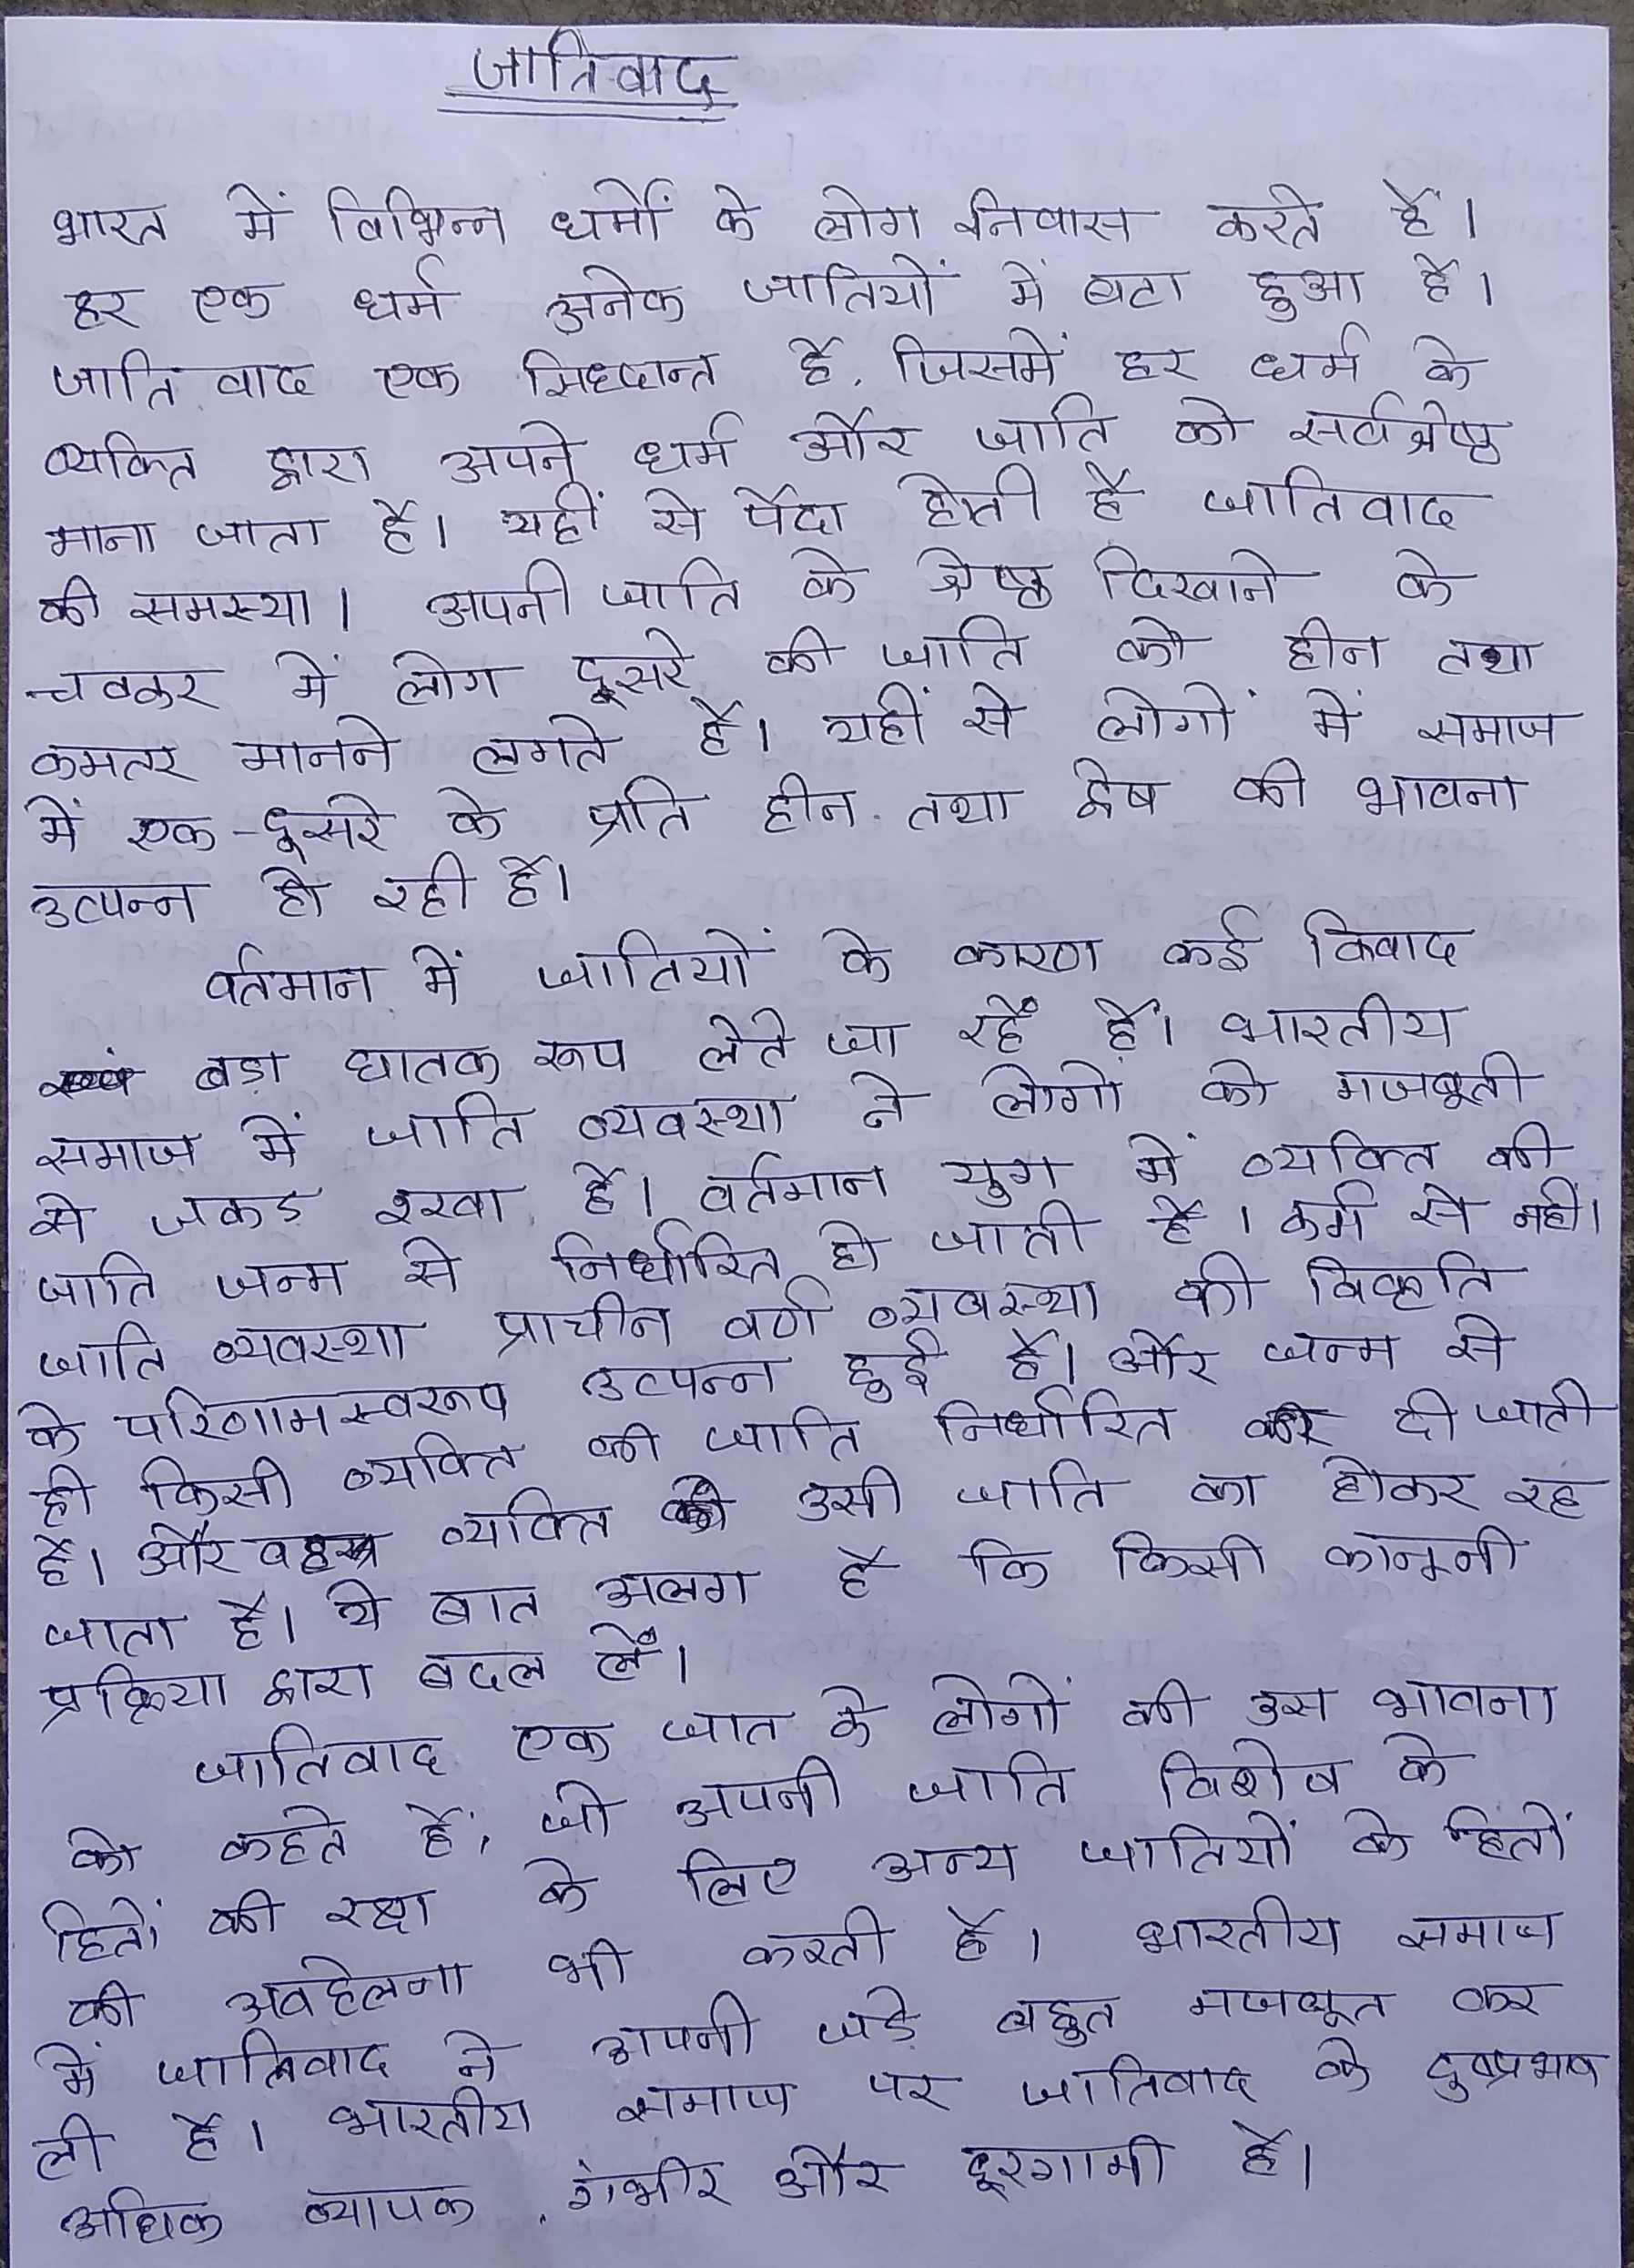 जातिवाद
भारत में विभिन्न धर्मों के लोग निवास करते हैं।
हर एक धर्म अनेक जातियों में बटा हुआ है।
जाति वाद एक सिध्दान्त है, जिसमें हर धर्म के
व्यक्ति द्वारा अपने धर्म और जाति को सर्वश्रेष्ठ
माना जाता है। यहीं से पैदा होती है जातिवाद
की समस्या। अपनी जाति के श्रेष्ठ दिखाने के
चक्कर में लोग दूसरे की जाति को हीन तथा
कमतर मानने लगते हैं। यहीं से लोगों में समाज
में एक-दूसरे के प्रति हीन तथा द्वेष की भावना
उत्पन्न हो रही है।
वर्तमान में जातियों के कारण कई विवाद
बड़ा घातक रूप लेते जा रहे हैं। भारतीय
समाज में जाति व्यवस्था ने लोगों को मजबूती
से जकड़ रखा है। वर्तमान युग में व्यक्ति की
जाति जन्म से निर्धारित हो जाती है। कर्म से नहीं।
जाति व्यवस्था प्राचीन वर्ण व्यवस्था की विकृति
के परिणामस्वरूप उत्पन्न हुई है। और जन्म से
ही किसी व्यक्ति की जाति निर्धारित कर दी जाती
है। और वह व्यक्ति उसी जाति का होकर रह
जाता है। ये बात अलग है कि किसी कानूनी
प्रक्रिया द्वारा बदल लें।
जातिवाद एक जात के लोगों की उस भावना
को कहते हैं, जो अपनी जाति विशेष के
हितों की रक्षा के लिए अन्य जातियों के हितों
की अवहेलना भी करती है। भारतीय समाज
में जातिवाद ने अपनी जड़े बहुत मजबूत कर
ली है। भारतीय समाज पर जातिवाद के दुष्प्रभाव
अधिक व्यापक, गंभीर और दूरगामी है।